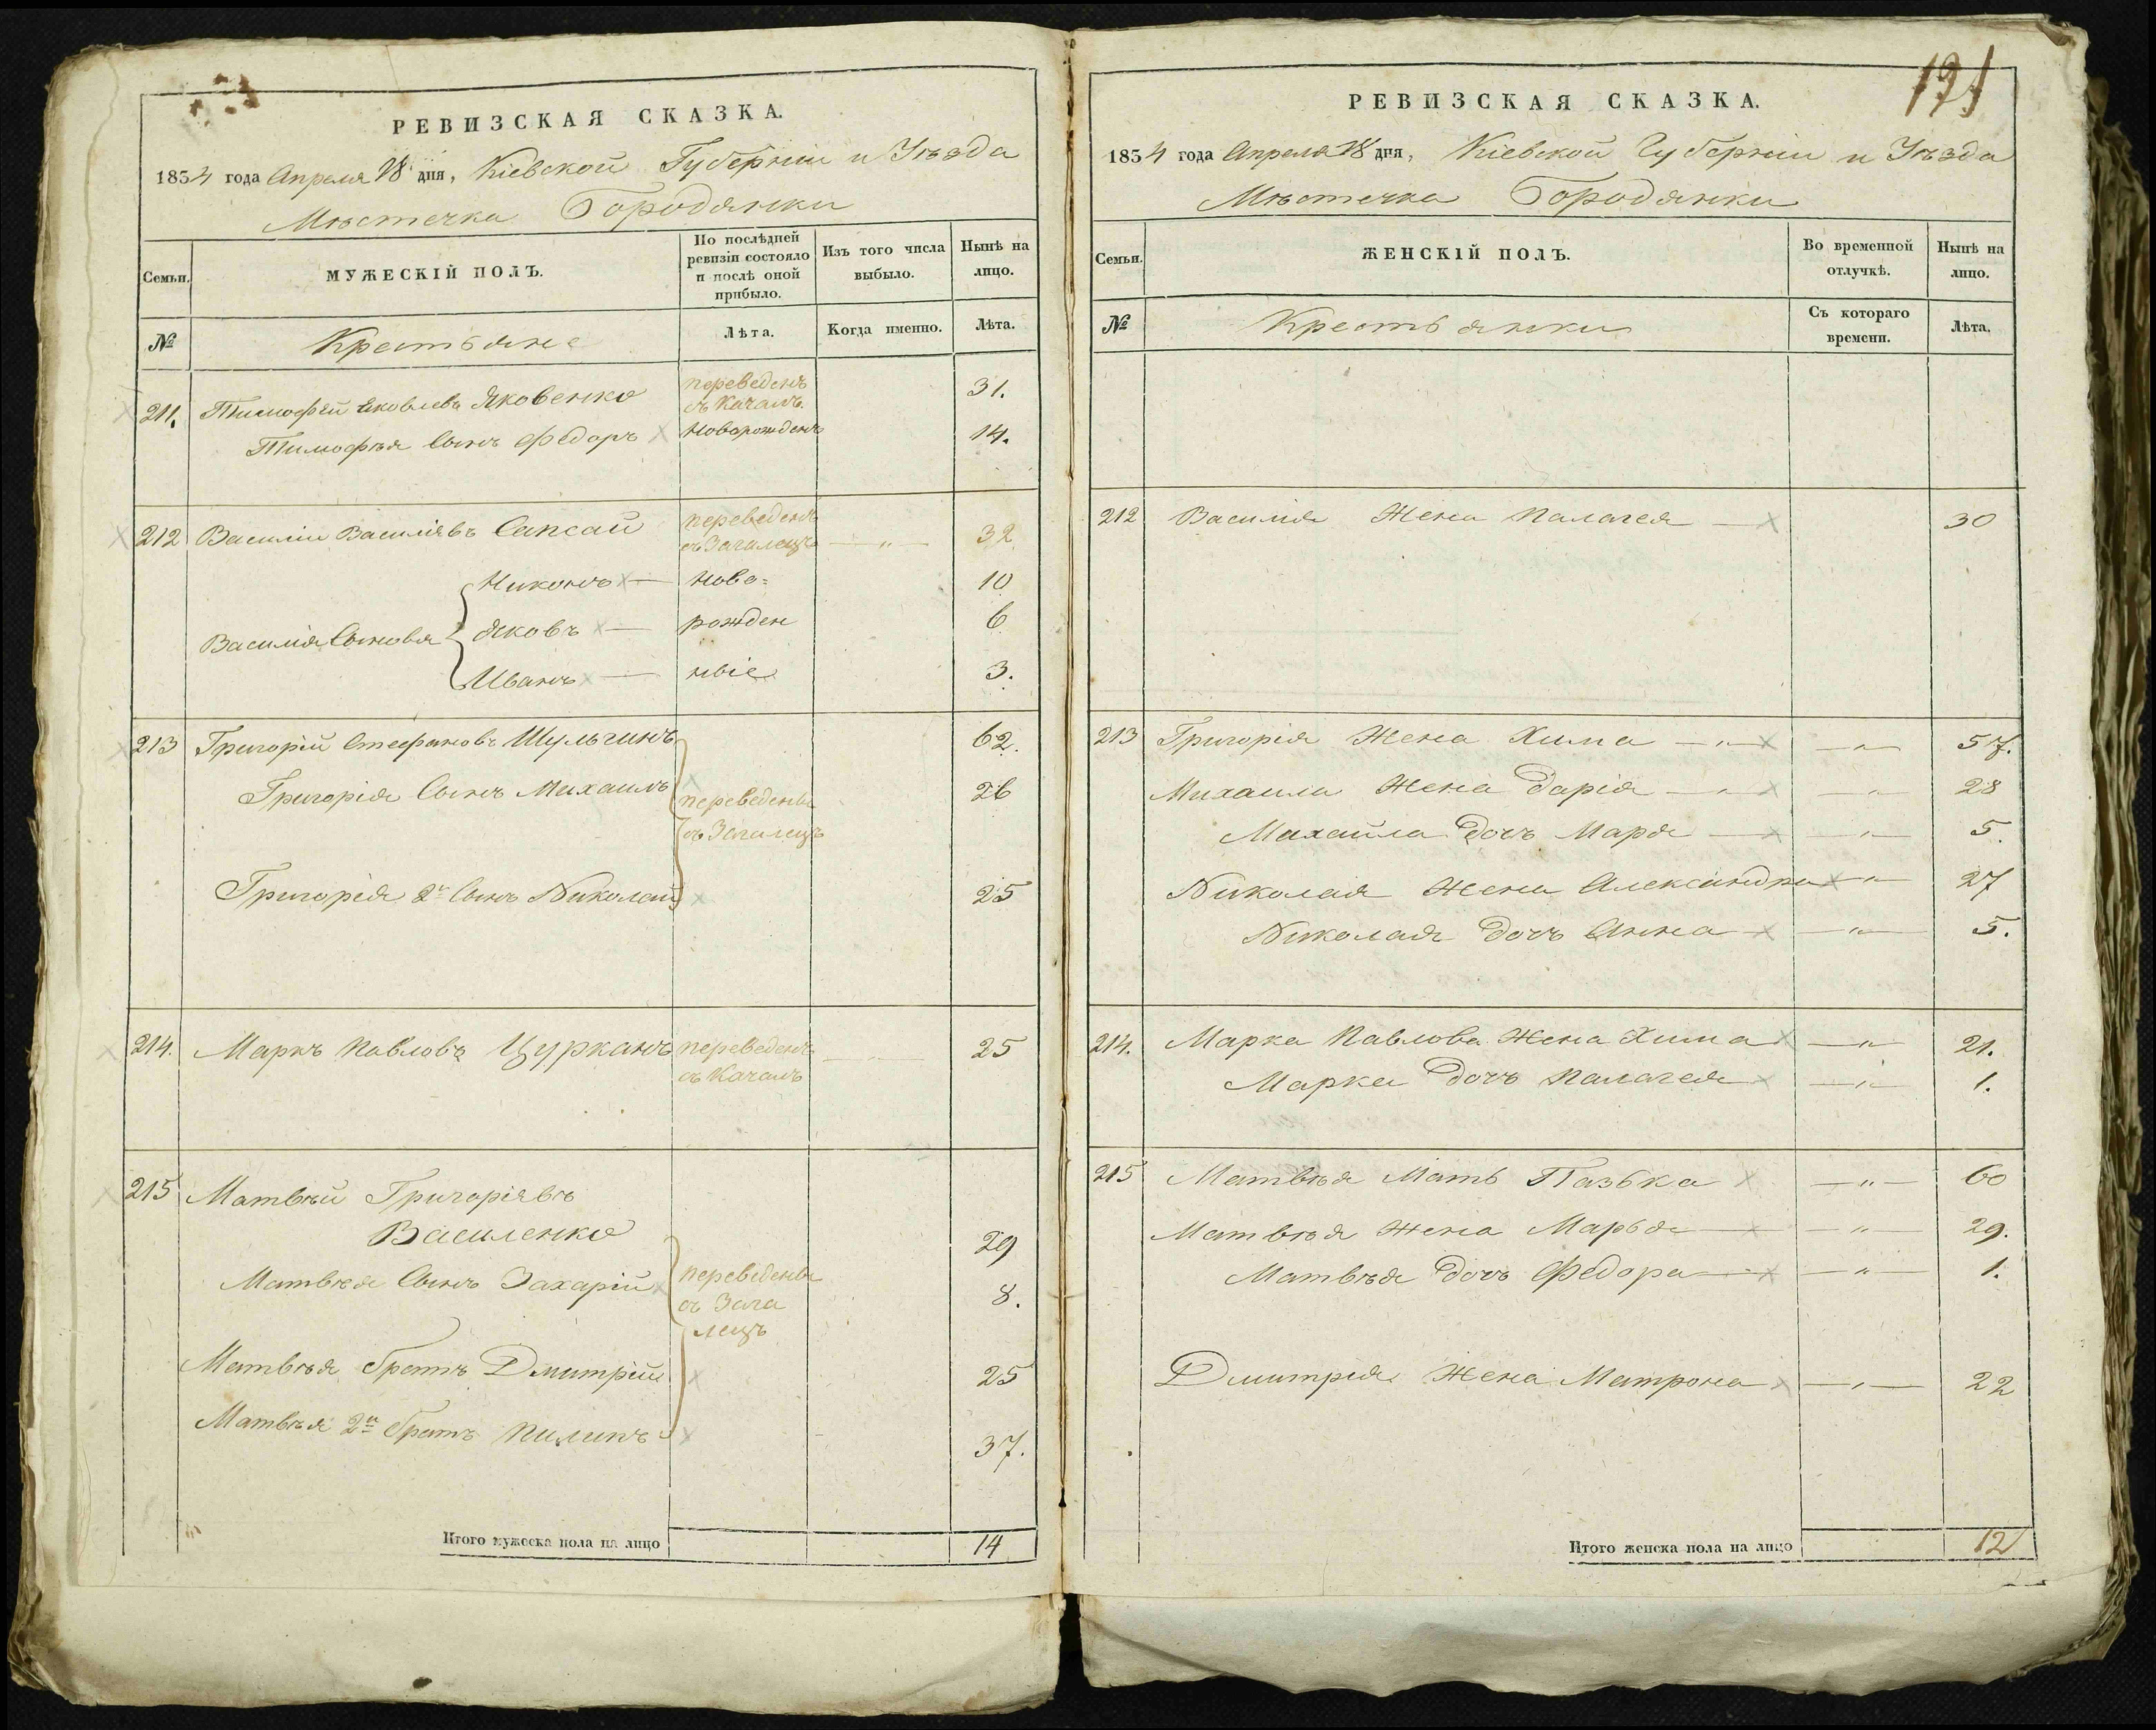 РЕВИЗСКАЯ СКАЗКА.
1854 года Апреля 18 дня, Кіевской Губерніи и Уѣзда
Мѣстечка Городянки
Семьи.
МУЖЕСКІЙ ПОЛЪ.
По послѣдней ревизіи состояло и послѣ оной прибыло.
Изъ того числа выбыло.
Нынѣ на лицо.
№
Крестьяне
Лѣта.
Когда именно.
Лѣта.
211. Тимофей Яковлевъ Яковенко переведенъ съ Качалъ 31.
Тимофѣя Сынъ Федоръ Новорожденъ 14.
212 Василій Василіевъ Сапсай переведенъ съ Загалецъ — „ — 32
Никонъ — ново= 10
Василія Сыновья Яковъ — рожден 6
Иванъ — ныіе 3.
213 Григорій Стефановъ Шульгинъ 62.
Григорія Сынъ Михаилъ переведены съ Загалецъ 26
Григорія 2й Сынъ Николай 25
214. Маркъ Павловъ Цурканъ переведенъ съ Качалъ 25
215 Матвѣй Григоріявъ
Василенко 29
Матвѣя Сынъ Захарій переведены съ Зага лецъ 8.
Матвѣя братъ Дмитрій 25
Матвѣя 2й братъ Пилипъ 37.
Итого мужеска пола на лицо 14
191
РЕВИЗСКАЯ СКАЗКА.
1854 года Апреля 18 дня, Кіевской Губерніи и Уѣзда
Мѣстечка Городянки
Семьи.
ЖЕНСКІЙ ПОЛЪ.
Во временной отлучкѣ.
Нынѣ на лицо.
№
Крестьянки
Съ котораго времени.
Лѣта.
212 Василія Жена Палагея — 30
213 Григорія Жена Хима — „ — — „ — 57.
Михаила Жена Дарія — „ — — „ — 28
Михайла Дочъ Маря — — „ — 5.
Николая Жена Александра — „ — 27
Николая Дочъ Анна — — „ — 5.
214. Марка Павлова Жена Хима — „ — 21.
Марка Дочъ Палагея — „ — 1.
215 Матвѣя Мать Пазька — „ — 60
Матвѣя Жена Марья — — „ — 29.
Матвѣя Дочъ Федора — — „ — 1.
Дмитрія Жена Матрона — „ — 22
Итого женска пола на лицо 12